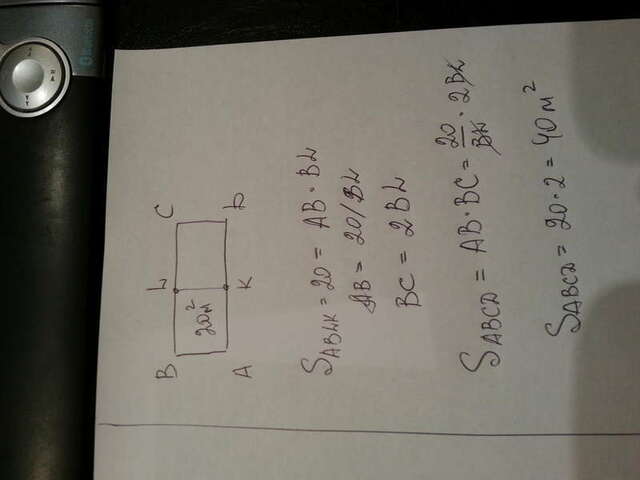 B L C
20м²
A K D
S_ABLK = 20 = AB · BL
AB = 20/BL
BC = 2BL
S_ABCD = AB · BC = 20/BL · 2BL
S_ABCD = 20 · 2 = 40 м²